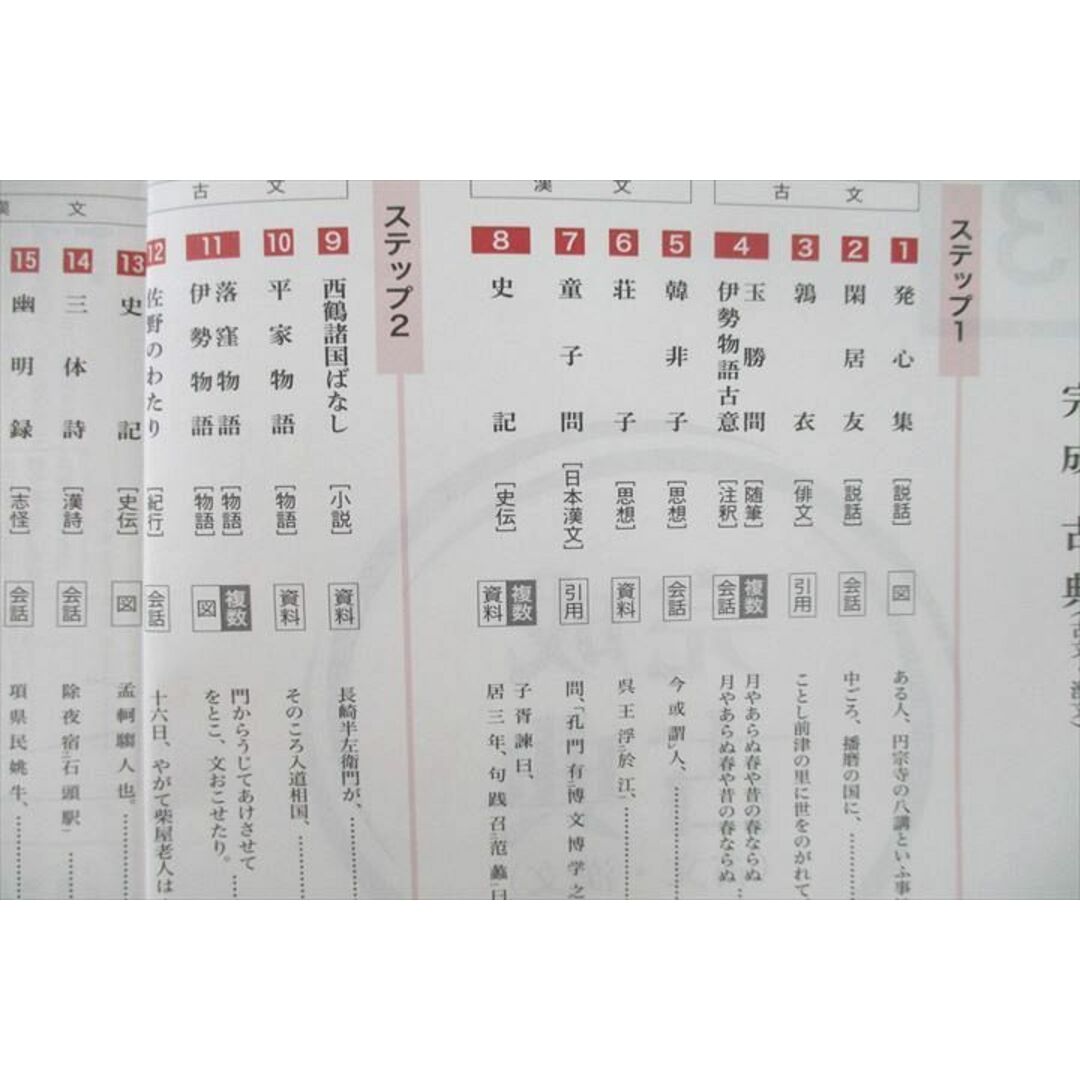 完成古典
ステップ1
古文
1
発心集
[説話]
図
ある人、円宗寺の八講といふ事
2
閑居友
[説話]
会話
中ごろ、播磨の国に、
3
鶉衣
[俳文]
引用
ことし前津の里に世をのがれて、
4
玉勝間
[随筆]
伊勢物語古意
[注釈]
複数
会話
月やあらぬ春や昔の春ならぬ
月やあらぬ春や昔の春ならぬ
漢文
5
韓非子
[思想]
会話
今或謂人、
6
荘子
[思想]
資料
呉王浮於江、
7
童子問
[日本漢文]
引用
問、「孔門有博文博学之
8
史記
[史伝]
複数
資料
子胥諫曰、
居三年、句践召范蠡曰
ステップ2
古文
9
西鶴諸国ばなし
[小説]
資料
長崎半左衛門が、
10
平家物語
[物語]
資料
そのころ入道相国、
11
落窪物語
[物語]
伊勢物語
[物語]
複数
図
門からうじてあけさせて
をとこ、文おこせたり。
12
佐野のわたり
[紀行]
会話
十六日、やがて柴屋老人は
漢文
13
史記
[史伝]
図
孟軻騶人也。
14
三体詩
[漢詩]
会話
除夜宿石頭駅
15
幽明録
[志怪]
会話
項県民姚牛、